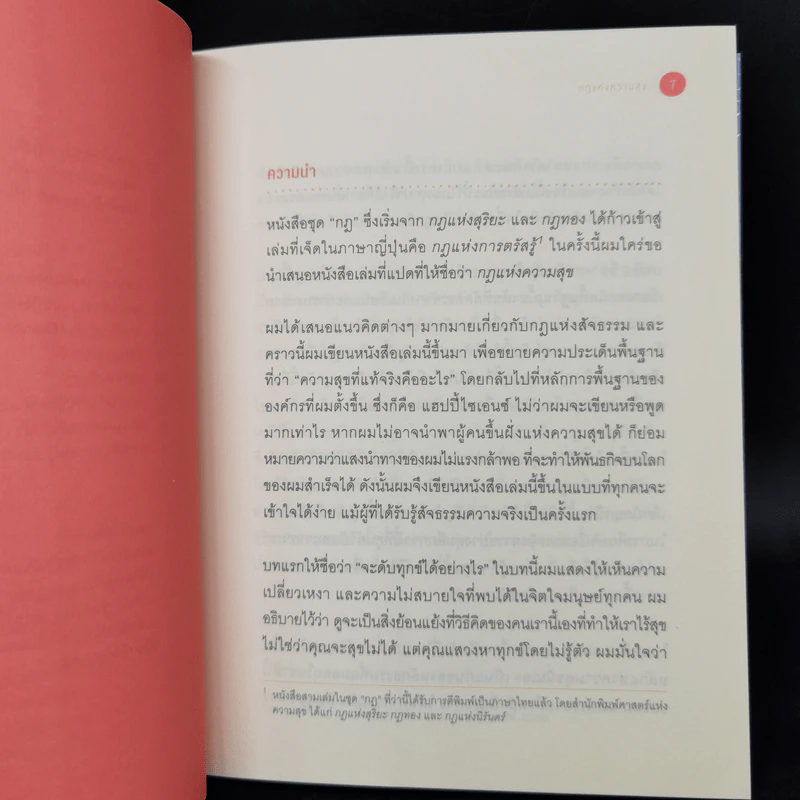 7
ความนำ
หนังสือชุด “กฎ” ซึ่งเริ่มจาก กฎแห่งสุริยะ และ กฎทอง ได้ก้าวเข้าสู่
เล่มที่เจ็ดในภาษาญี่ปุ่นคือ กฎแห่งการตรัสรู้1 ในครั้งนี้ผมใคร่ขอ
นำเสนอหนังสือเล่มที่แปดที่ให้ชื่อว่า กฎแห่งความสุข
ผมได้เสนอแนวคิดต่างๆ มากมายเกี่ยวกับกฎแห่งสัจธรรม และ
คราวนี้ผมเขียนหนังสือเล่มนี้ขึ้นมา เพื่อขยายความประเด็นพื้นฐาน
ที่ว่า “ความสุขที่แท้จริงคืออะไร” โดยกลับไปที่หลักการพื้นฐานของ
องค์กรที่ผมตั้งขึ้น ซึ่งก็คือ แฮปปี้ไซเอนซ์ ไม่ว่าผมจะเขียนหรือพูด
มากเท่าไร หากผมไม่อาจนำพาผู้คนขึ้นฝั่งแห่งความสุขได้ ก็ย่อม
หมายความว่าแสงนำทางของผมไม่แรงกล้าพอ ที่จะทำให้พันธกิจบนโลก
ของผมสำเร็จได้ ดังนั้นผมจึงเขียนหนังสือเล่มนี้ขึ้นในแบบที่ทุกคนจะ
เข้าใจได้ง่าย แม้ผู้ที่ได้รับรู้สัจธรรมความจริงเป็นครั้งแรก
บทแรกให้ชื่อว่า “จะดับทุกข์ได้อย่างไร” ในบทนี้ผมแสดงให้เห็นความ
เปลี่ยวเหงา และความไม่สบายใจที่พบได้ในจิตใจมนุษย์ทุกคน ผม
อธิบายไว้ว่า ดูจะเป็นสิ่งย้อนแย้งที่วิธีคิดของคนเรานี้เองที่ทำให้เราไร้สุข
ไม่ใช่ว่าคุณจะสุขไม่ได้ แต่คุณแสวงหาทุกข์โดยไม่รู้ตัว ผมมั่นใจว่า
1 หนังสือสามเล่มในชุด “กฎ” ที่ว่านี้ได้รับการตีพิมพ์เป็นภาษาไทยแล้ว โดยสำนักพิมพ์ศาสตร์แห่ง
ความสุข ได้แก่ กฎแห่งสุริยะ กฎทอง และ กฎแห่งนิรันดร์